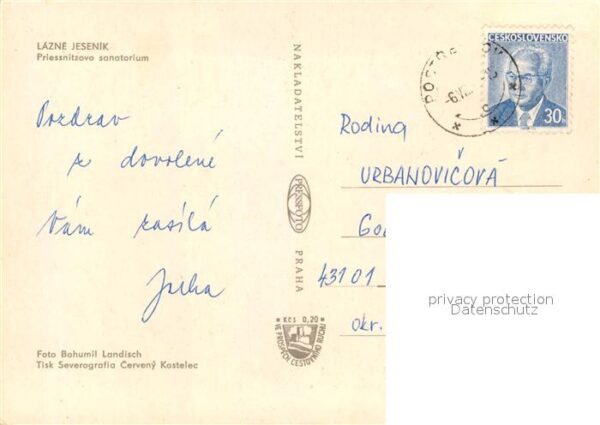 LÁZNĚ JESENÍK
Priessnitzovo sanatorium
Pozdrav
z dovolené
Vám zasílá
Foto Bohumil Landisch
Tisk Severografia Červený Kostelec
NAKLADATELSTVÍ
PRESSFOTO
PRAHA
* Kčs 0,20 *
VE PROSPĚCH CESTOVNÍHO RUCHU
ČESKOSLOVENSKO
30
Rodina
URBANOVIČOVÁ
43101
okr.
privacy protection
Datenschutz